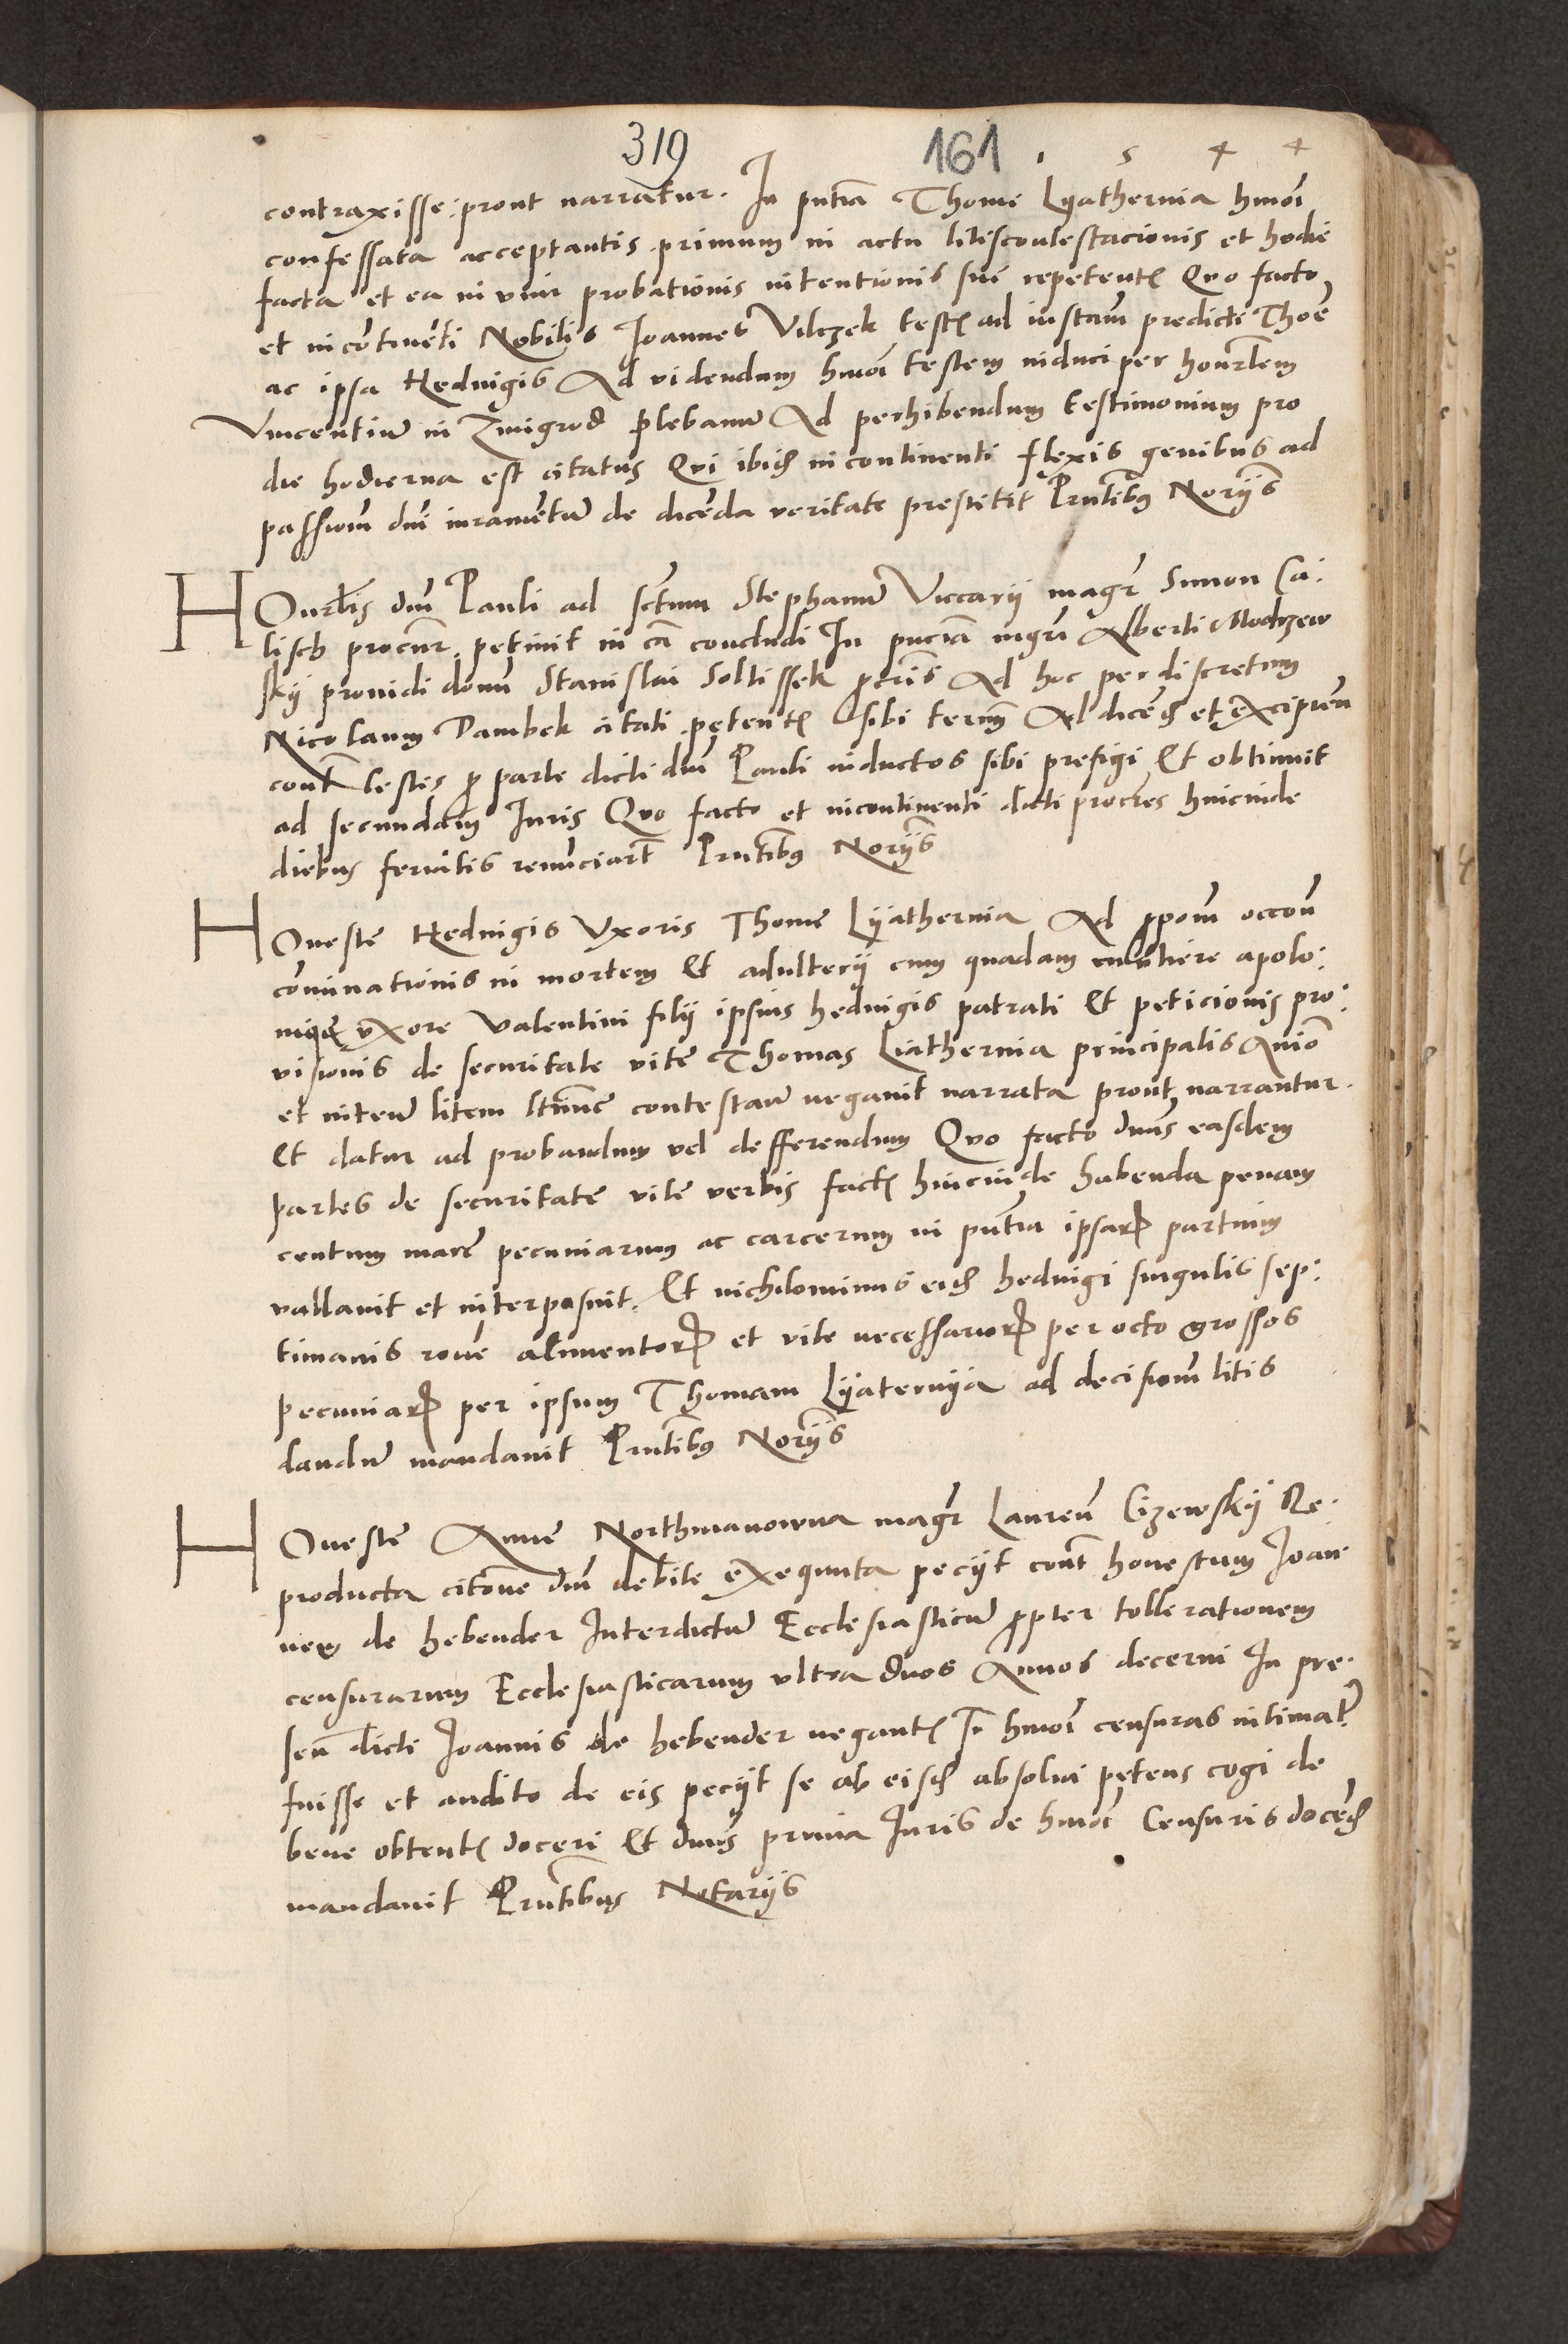 319 161 . 5 4 4
contraxisse: prout narratur. In pntia Thome Lyathernia hmoi
confessata acceptantis primum in actu litiscontestacionis et hodie
facta et ea in vim probationis intentionis sui repetent Quo facto
et incontinenti Nobilis Joannes Vilczek test ad instam predicti Thoe
ac ipsa Hedvigis Ad videndum hmoi testem induci per honrlem
Vincentium in Zmigrod Plebanum Ad perhibendum testimonium pro
die hodierna est citatus Qui ibid incontinenti flexis genibus ad
passiom dni iuramentum de dicenda veritate prestitit Pntibus Noriis
HOnrlis dni Pauli ad sctum Stephanum Viccarii magr Simon Ca:
lisch procur. petiuit in ca concludi In pnciam mgri Alberti Modrzew
skij prouidi domi Stanislai Soltissek pcris Ad hoc per discretum
Nicolaum Dambek citati petent sibi termm Ad dicend et excipien
cont testes p parte dicti dni Pauli inductos sibi prefigi Et obtinuit
ad secundam Juris Quo facto et incontinenti dicti procres hincinde
diebus feriatis renunciarunt Pntibus Noriis
HOneste Hedvigis Vxoris Thome Lyathernia Ad pposom occom
cominationis in mortem Et adulterii cum quadam muliere apolo:
nia uxore Valentini filii ipsius hedvigis patrati Et peticionis pro:
visionis de securitate vite Thomas Liathernia principalis Anio
et inteum litem ltime contestan negauit narrata prout narrantur.
Et datur ad probandum vel defferendum Quo facto dnus easdem
partes de securitate vite verbis fact hincinde habenda penam
centum marc pecuniarum ac carcerum in pntia ipsar partium
vallauit et interposuit. Et nichilominus eid hedvigi singulis sep:
timanis rone alimentor et vite necessarior per octo grossos
pecuniar per ipsum Thomam Lyaternija ad decisiom litis
dandum mandauit Pntibus Noriis
HOneste Anne Northmanowna magr Lauren Cizewskij Re:
producta citone dni debite exequuta peciit cont honestum Joan
nem de hebender Interdictum Ecclesiasticum ppter tollerationem
censurarum Ecclesiasticarum vltra duos Annos decerni In pre:
sen dicti Joannis de hebender negant s hmoi censuras intimat
fuisse et audito de eis peciit se ab eisd absolui petens cogi de
bene obtent doceri Et dnus prima Juris de hmoi Censuris docend
mandauit Pntibus Notariis